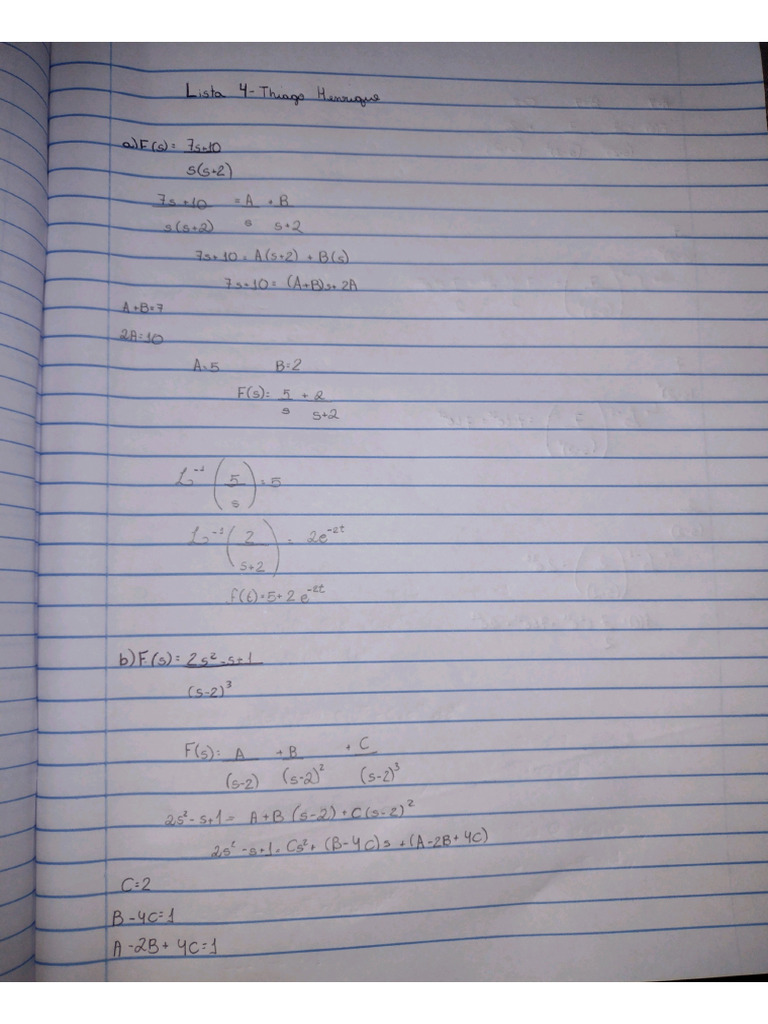 Lista 4 - Thiago Henrique
a) F(s) = 7s+10
s(s+2)
7s+10 = A + B
s(s+2) s s+2
7s+10 = A(s+2) + B(s)
7s+10 = (A+B)s+2A
A+B=7
2A=10
A=5 B=2
F(s) = 5 + 2
s s+2
L⁻¹ (5/s) = 5
L⁻¹ (2/s+2) = 2e⁻²ᵗ
f(t) = 5+2e⁻²ᵗ
b) F(s) = 2s²-s+1
(s-2)³
F(s) = A + B + C
(s-2) (s-2)² (s-2)³
2s²-s+1 = A+B (s-2)+C(s-2)²
2s²-s+1 = Cs²+(B-4C)s+(A-2B+4C)
C=2
B-4C=1
A-2B+4C=1